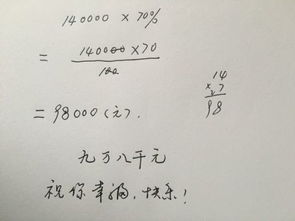 140000 × 70%
= 140000×70
100
= 98000(元).
14
× 7
98
九万八千元
祝你幸福,快乐!